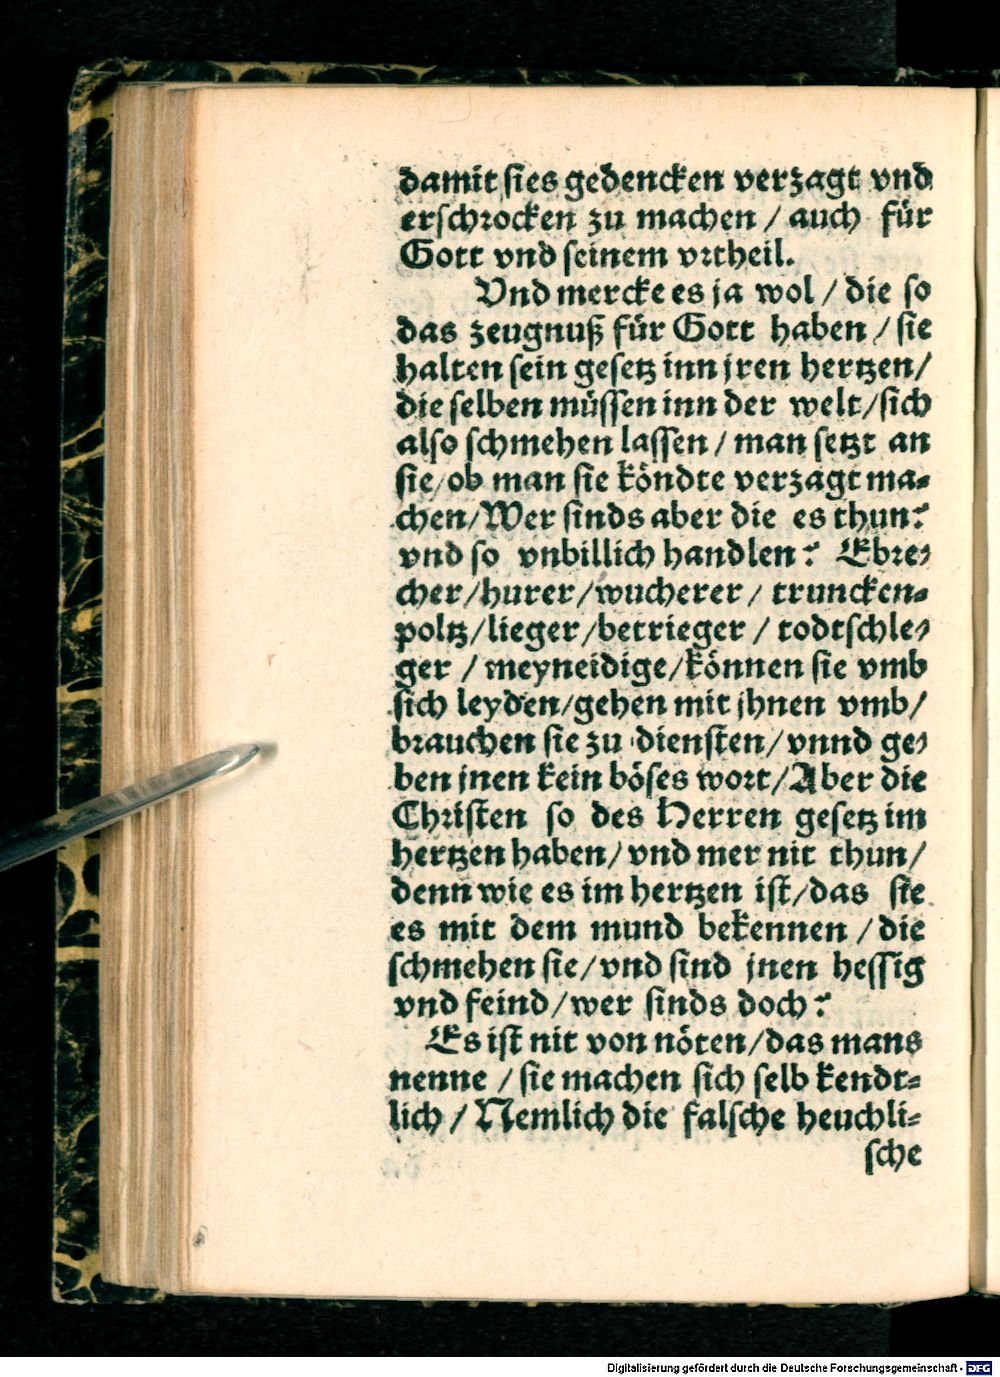 damit sies gedencken verzagt vnd
erschrocken zu machen / auch für
Gott vnd seinem vrtheil.
Vnd mercke es ja wol / die so
das zeugnuß für Gott haben / sie
halten sein gesetz inn jren hertzen /
die selben müssen inn der welt / sich
also schmehen lassen / man setzt an
sie / ob man sie köndte verzagt ma⸗
chen / Wer sinds aber die es thun?
vnd so vnbillich handlen? Ebre⸗
cher / hurer / wucherer / truncken⸗
poltz / lieger / betrieger / todtschle⸗
ger / meyneidige / können sie vmb
sich leyden / gehen mit jhnen vmb /
brauchen sie zu diensten / vnnd ge⸗
ben jnen kein böses wort / Aber die
Christen so des Herren gesetz im
hertzen haben / vnd mer nit thun /
denn wie es im hertzen ist / das sie
es mit dem mund bekennen / die
schmehen sie / vnd sind jnen hessig
vnd feind / wer sinds doch?
Es ist nit von nöten / das mans
nenne / sie machen sich selb kendt⸗
lich / Nemlich die falsche heuchli⸗
sche
Digitalisierung gefördert durch die Deutsche Forschungsgemeinschaft - DFG